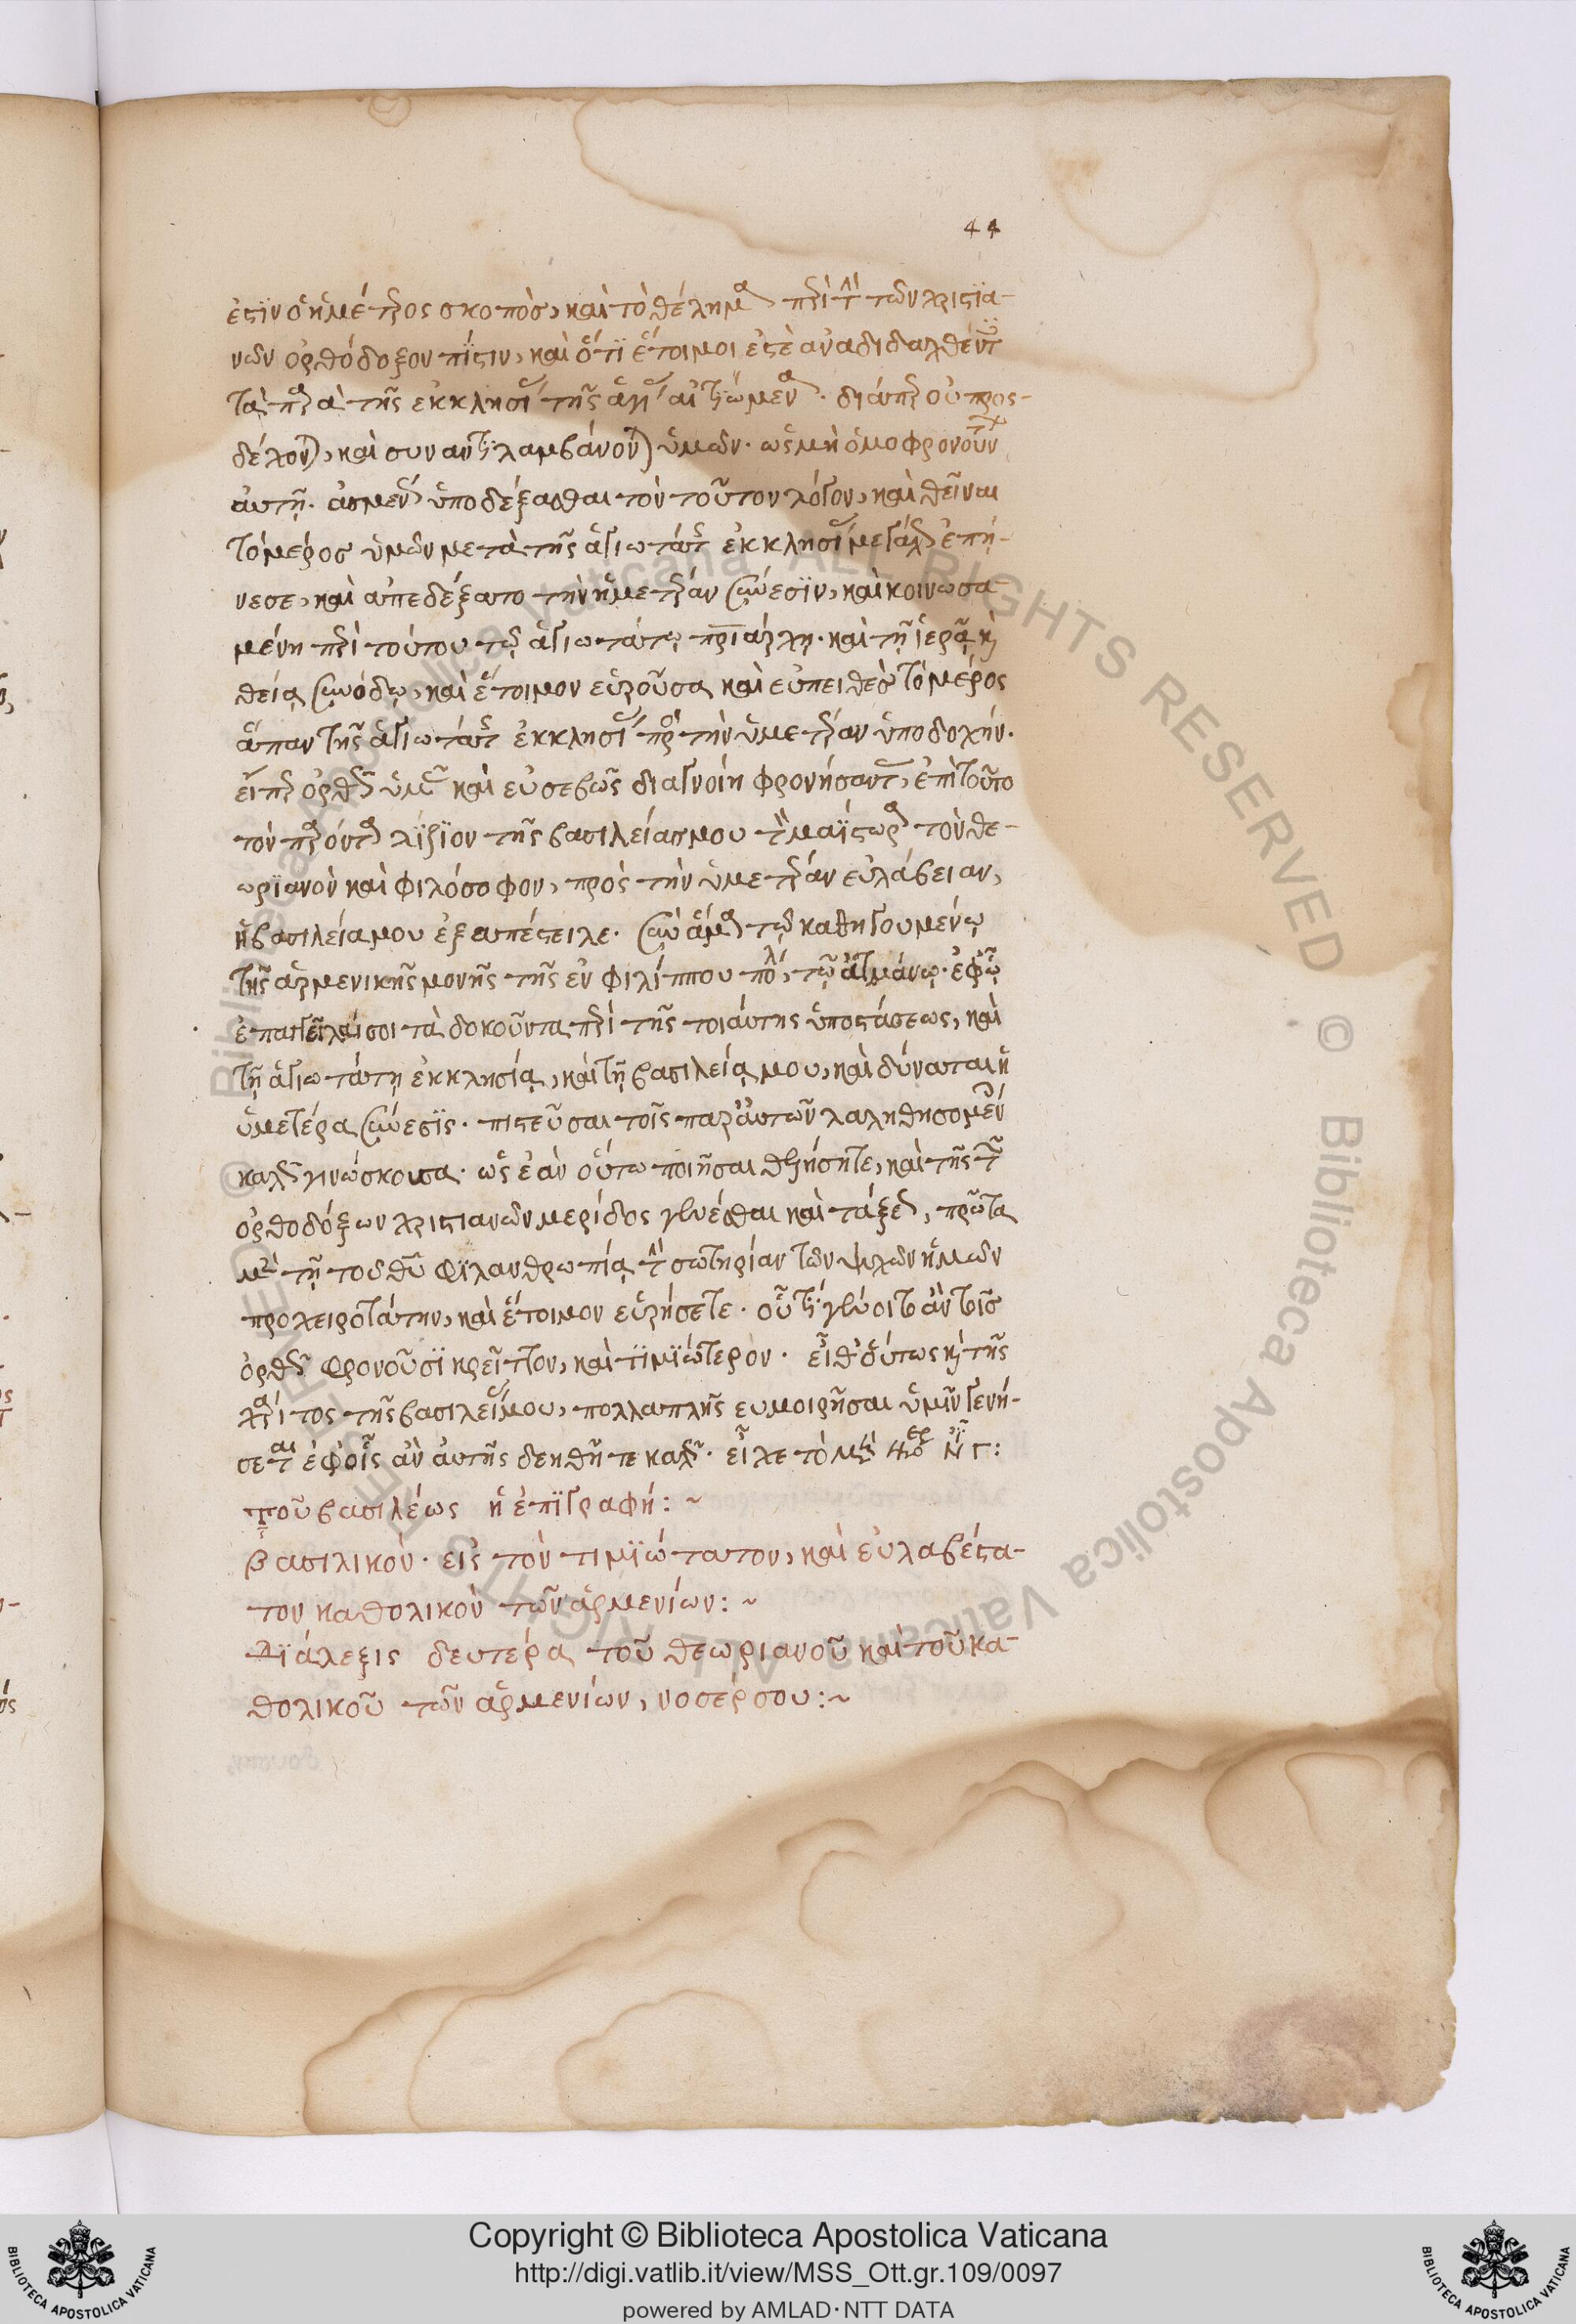 44
ἐστὶν ὁ ἡμέτερος σκοπὸς, καὶ τὸ θέλημα περὶ τὴν τῶν χριστια-
νῶν ὀρθόδοξον πίστιν, καὶ ὅτι ἕτοιμοι ἐστὲ ἀναδιδαχθέντες
τὰ παρὰ τῆς ἐκκλησίας τῆς ἁγίας αἰτιώμενα. διάπερ οὐ προσ-
δέχονται, καὶ συναντιλαμβάνονται ὑμῶν. ὡς μὴ ὁμοφρονούντων
αὐτῇ. ἀσμένως ὑποδέξασθαι τὸν τοῦτον λόγον, καὶ θεῖναι
τὸ μέρος ὑμῶν μετὰ τῆς ἁγιωτάτης ἐκκλησίας μεγάλως ἐπῄ-
νεσε, καὶ ἀπεδέξατο τὴν ἡμετέραν σύνεσιν, καὶ κοινωσα
μένη περὶ τούτου τῷ ἁγιωτάτῳ πριάρχῃ. καὶ τῇ ἱερᾷ κὶ
θείᾳ συνόδῳ, καὶ ἕτοιμον εὑροῦσα καὶ εὐπειθὲς τὸ μέρος
ἅπαν τῆς ἁγιωτάτης ἐκκλησίας πρὸς τὴν ὑμετέραν ὑποδοχήν.
εἴπερ ὀρθῶς ὑμᾶς καὶ εὐσεβῶς διαγνοίη φρονήσαντας, ἐπὶ τοῦτο
τὸν παρόντα λίζιον τῆς βασιλείας μου τὸν μαΐστωρα τὸν θε-
ωριανὸν καὶ φιλόσοφον, πρὸς τὴν ὑμετέραν εὐλάβειαν,
ἡ βασιλεία μου ἐξαπέστειλε. σὺν ἅμα τῷ καθηγουμένῳ
τῆς ἀρμενικῆς μονῆς τῆς ἐν φιλίππου πόλει, τῷ ἀτμάνῳ. ἐφ' ᾧ
ἐπαγγεῖλαί σοι τὰ δοκοῦντα περὶ τῆς τοιαύτης ὑποστάσεως, καὶ
τῇ ἁγιωτάτῃ ἐκκλησίᾳ, καὶ τῇ βασιλείᾳ μου, καὶ δύναται ἡ
ὑμετέρα σύνεσις. πιστεῦσαι τοῖς παρ' αὐτῶν λαληθησομένοις
καλῶς γινώσκουσα. ὡς ἐὰν οὕτω ποιῆσαι θελήσητε, καὶ τῆς τῶν
ὀρθοδόξων χριστιανῶν μερίδος γενέσθαι καὶ τάξεως, πρῶτα
μὲν τῇ τοῦ θυ φιλανθρωπίᾳ τὴν σωτηρίαν τῶν ψυχῶν ἡμῶν
προχειροτάτην, καὶ ἕτοιμον εὑρήσετε. οὗ τί γένοιτ' ἂν τοῖς
ὀρθῶς φρονοῦσι κρεῖττον, καὶ τιμιώτερον. εἶθ' οὕτως κὶ τῆς
χάριτος τῆς βασιλείας μου, πολλαπλῆς εὐμοιρῆσαι ὑμῖν γενή-
σεται ἐφ' οἷς ἂν αὐτῆς δεηθῆτε καλῶς.
τοῦ βασιλέως ἡ ἐπιγραφή: ~
βασιλικὸν. εἰς τὸν τιμιώτατον, καὶ εὐλαβέστα-
τον καθολικὸν τῶν ἀρμενίων: ~
Διάλεξις δευτέρα τοῦ θεωριανοῦ καὶ τοῦ κα-
θολικοῦ τῶν ἀρμενίων, νοσέρσου: ~
Copyright © Biblioteca Apostolica Vaticana
http://digi.vatlib.it/view/MSS_Ott.gr.109/0097
powered by AMLAD·NTT DATA
© Biblioteca Apostolica Vaticana ALL RIGHTS RESERVED
BIBLIOTECA APOSTOLICA VATICANA
BIBLIOTECA APOSTOLICA VATICANA